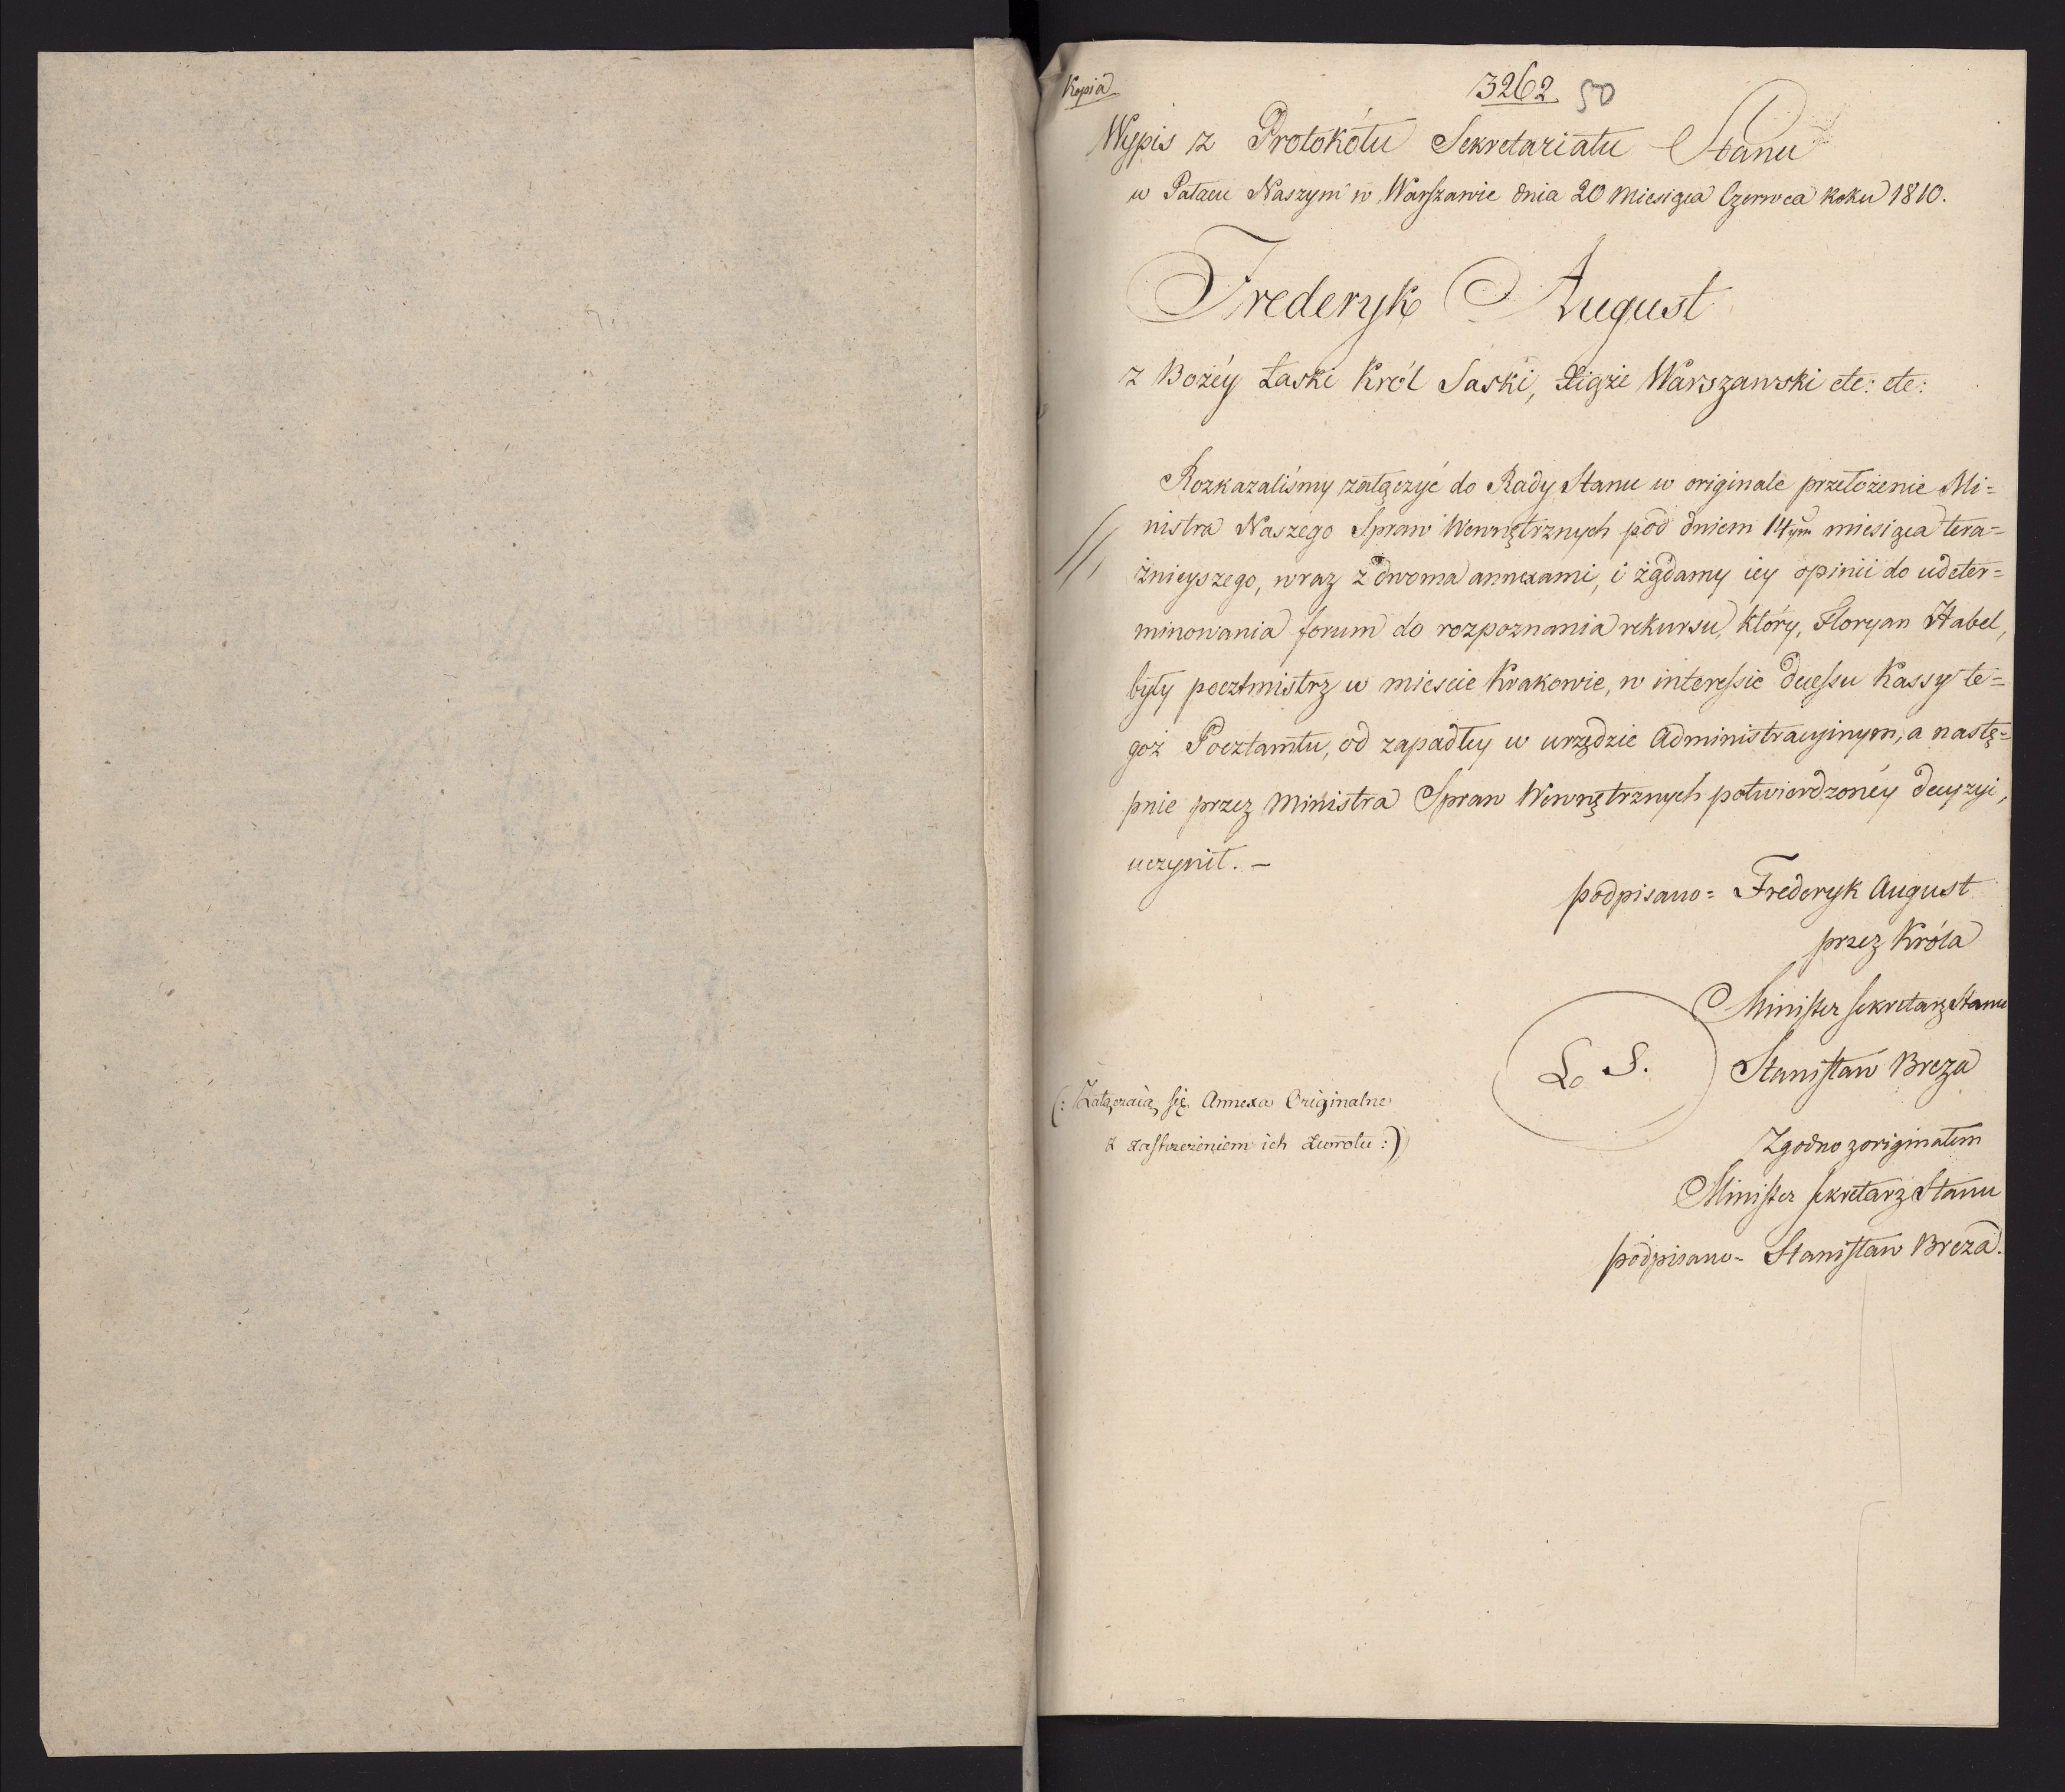 Kopia
3262 50
Wypis z Protokółu Sekretariatu Stanu
w Pałacu Naszym w Warszawie dnia 20 Miesiąca Czerwca Roku 1810.
Frederyk August
z Bożéy Łaski Król Saski, Xiąże Warszawski etc: etc:
Rozkazaliśmy załączyć do Rady Stanu w originale przełożenie Mi=
nistra Naszego Spraw Wewnętrznych pod dniem 14tym miesiąca tera=
źnieyszego, wraz z dwoma annexami, i żądamy iey opinii do udeter=
minowania forum do rozpoznania rekursu, który, Floryan Habel,
były pocztmistrz w mieście Krakowie, w interessie decessu Kassy te=
goż Pocztamtu, od zapadłey w urzędzie Administracyinym, a nastę=
pnie przez Ministra Spraw Wewnętrznych potwierdzonéy decyzyi,
uczynił. —
podpisano= Frederyk August
przez Króla
Minister Sekretarz Stanu
L. S.
Stanisław Breza
(: Załączaią się Annexa Originalne
z zastrzeżeniem ich zwrotu :)
Zgodno z originałem
Minister Sekretarz Stanu
podpisano= Stanisław Breza.